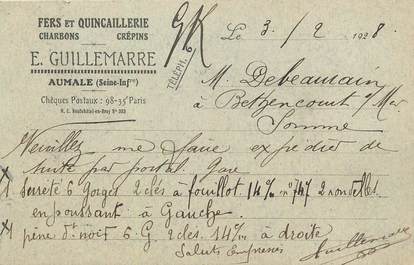 FERS ET QUINCAILLERIE
CHARBONS CRÉPINS
E. GUILLEMARRE
AUMALE (Seine-Infre)
TÉLÉPH. 6
Chèques Postaux : 98-35 Paris
R. C. Neufchâtel-en-Bray N° 303
Le 3/2 1928
M. Debeaurain
à Betzencourt s/ Mer
Somme
Veuillez me faire expédier de
suite par postal Gare
1 6 gorges 2 clés à fouillot 14 % n° 747 2 rondelles
en poussant à Gauche.
1 pène dt noir 6 G. 2 cles. 14 % à droite
Saluts Empressés
Guillemarre